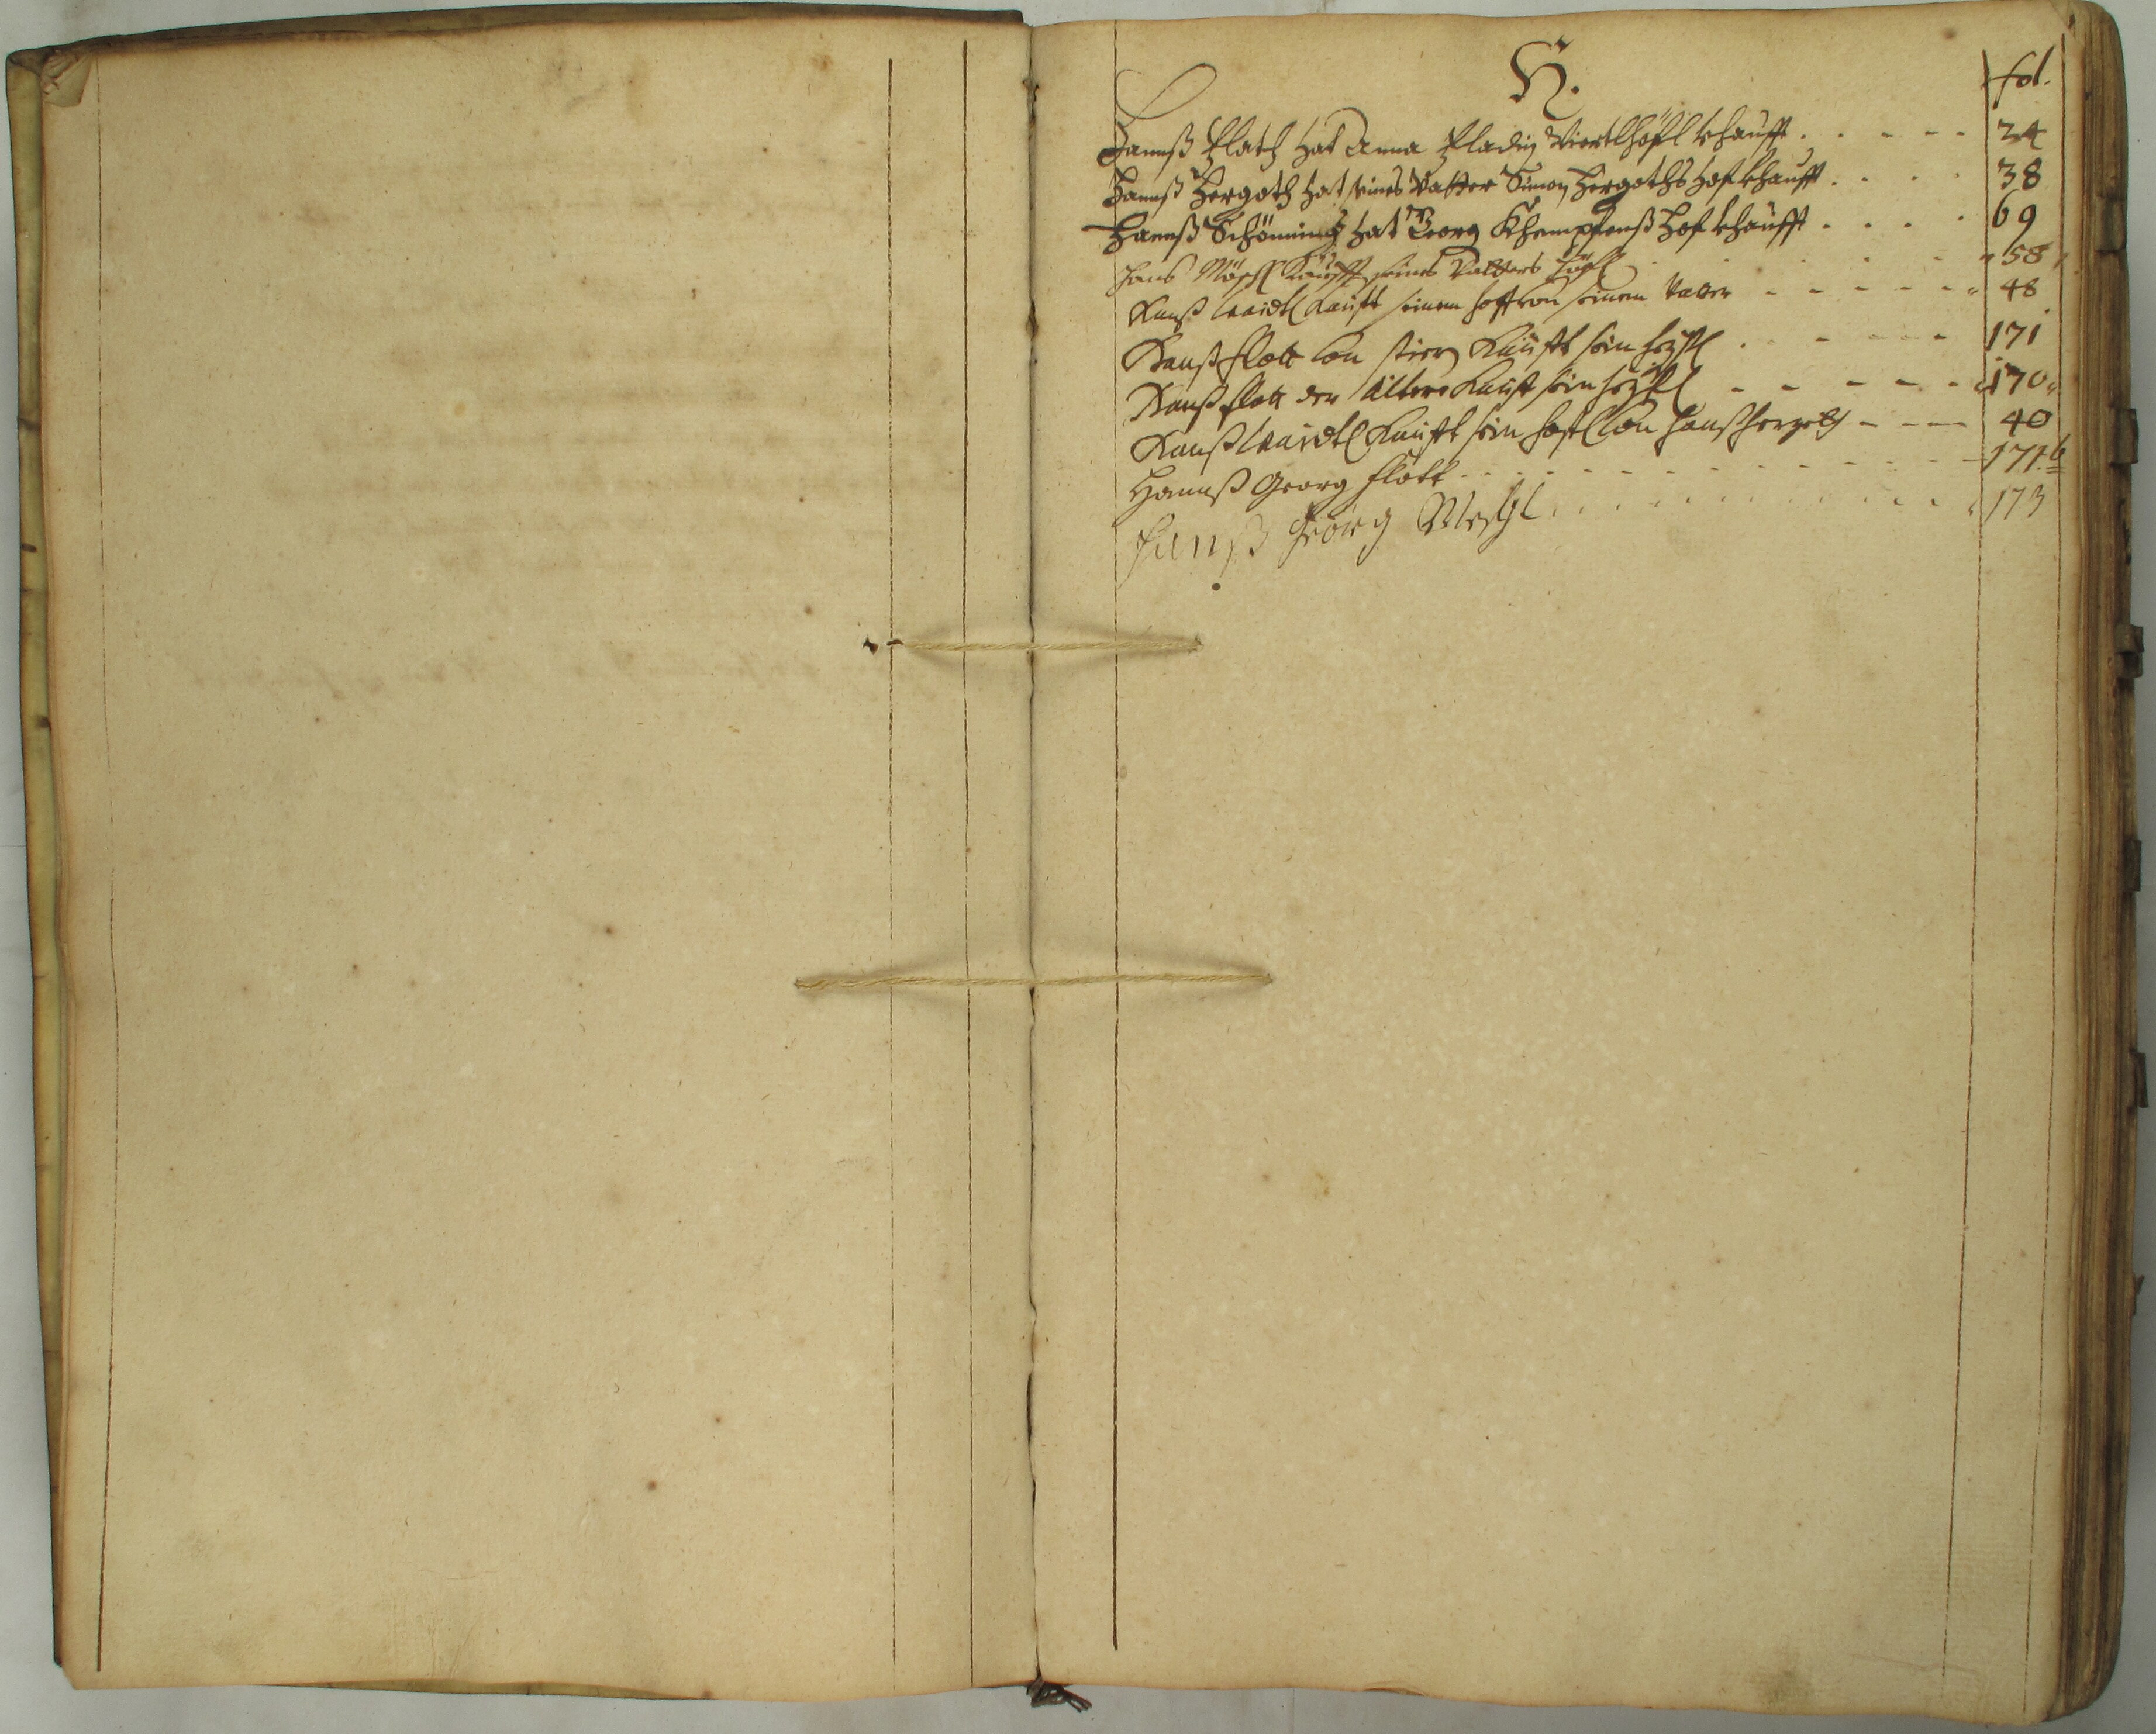 H.
fol.
Hannß Plath hat Anna Pladin Viertlhöfl khaufft . . - - - 24
Hannß Hergoth hat seines Vatter Simon Hergoths Hof khaufft . . . . 38
Hannß Schönning hat Georg Khempfenß Hof khaufft . . . . 69
Hans Mößl Kaufft seines Vatters höfl . . . . . 58
Hanß Waidtl Kaufft seinen hoff von seinem Vatter - - - - - 48
Hanß flott von Kaufft sein . . - - - - 171
Hanß flott der ältere Kaufft sein - - - - - 170
Hanß Waidtl Kaufft sein höfl von Hanß Hergoth - - - 40
Hannß Georg flott - - - - - - - - 171.b
Hanß Georg Meßl . . . . . . . . . 173